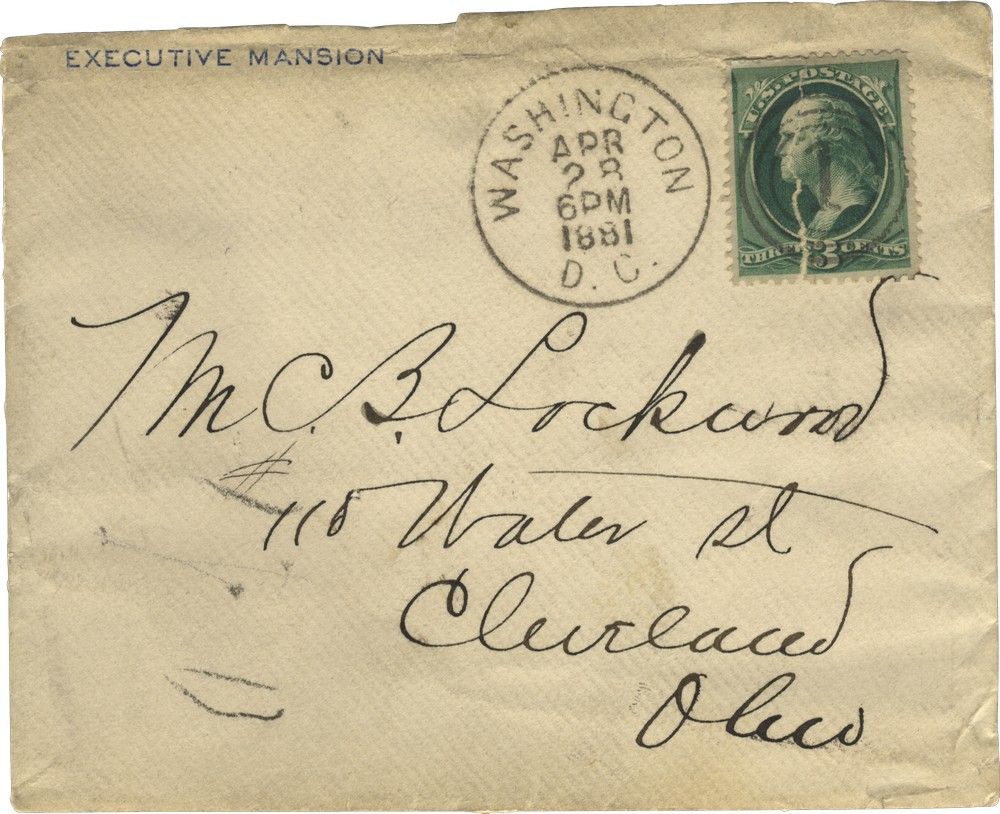 EXECUTIVE MANSION
WASHINGTON
APR
28
6PM
1881
D. C.
U.S. POSTAGE
THREE 3 CENTS
M C. B. Lockwood
# 118 Water st
Cleveland
Ohio